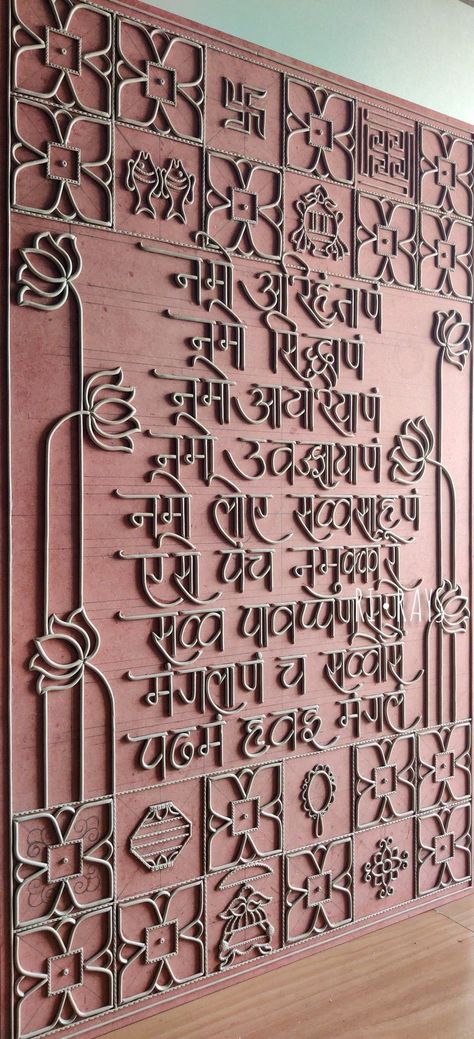 नमो अरिहंताणं
नमो सिद्धाणं
नमो आयरियाणं
नमो उवज्झायाणं
नमो लोए सव्वसाहूणं
एसो पंच नमुक्कारो
सव्व पावप्पणासणो
मंगलाणं च सव्वेसिं
पढमं हवइ मंगलं
RI RAYS